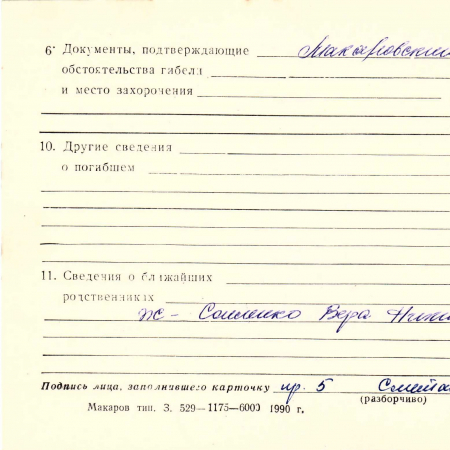 6. Документы, подтверждающие Макаровский
обстоятельства гибели
и место захоронения
10. Другие сведения
о погибшем
11. Сведения о ближайших
родственниках
ж – Сошенко Вера
Подпись лица, заполнившего карточку пр. 5
(разборчиво)
Макаров тип. З. 529—1175—6000 1990 г.